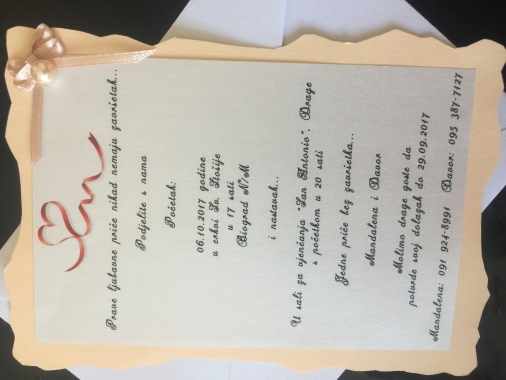 Prave ljubavne priče nikad nemaju završetak...
Podijelite s nama
Početak:
06.10.2017 godine
u crkvi Sv. Stošije
u 17 sati
Biograd N/M
i nastavak...
U sali za vjenčanja "San Antonio", Drage
s početkom u 20 sati
Jedne priče bez završetka...
Mandalena i Davor
Molimo drage goste da
potvrde svoj dolazak do 29.09.2017
Mandalena: 091 924-8991 Davor: 095 387-7127